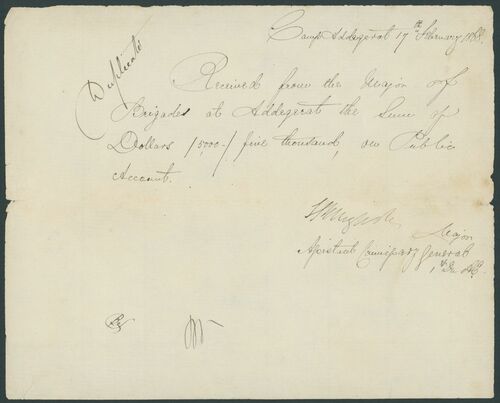 Duplicate
Camp Addegerat 17th February 1868.
Received from the Major of
Brigades at Addegerat the Sum of
Dollars /5000-/ five thousand, on Public
Account.
Major
Assistant Commissary General